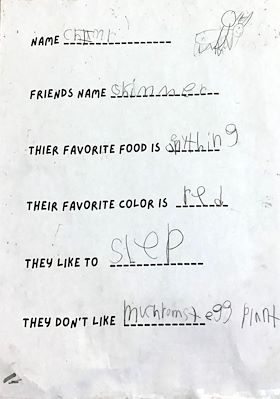 NAME
FRIENDS NAME skinner
THIER FAVORITE FOOD IS
THEIR FAVORITE COLOR IS red
THEY LIKE TO slep
THEY DON'T LIKE egg plant